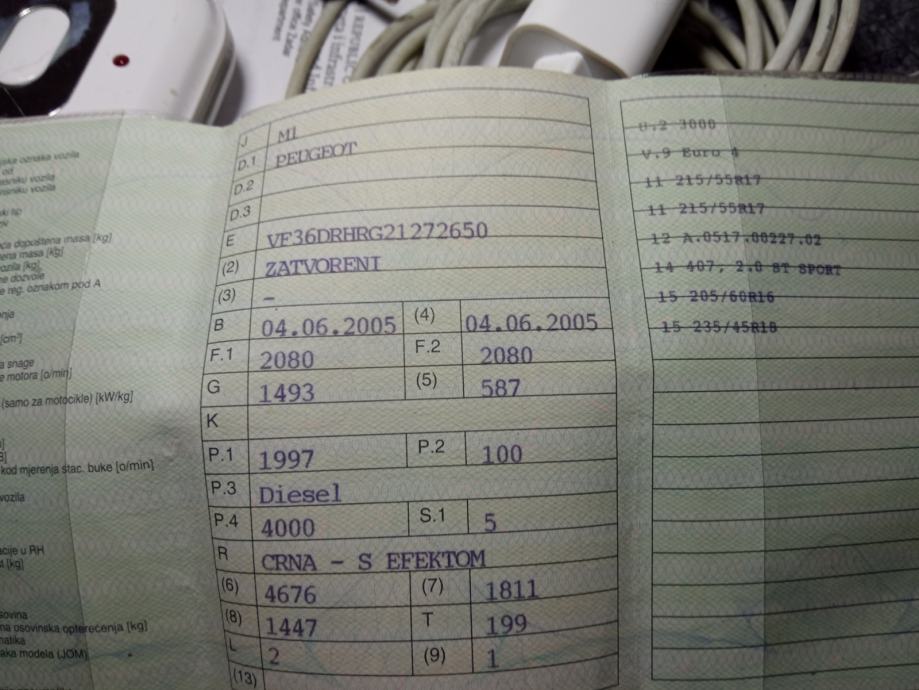 REPUBLIC
jska oznaka vozila
od
asniku vozila
asniku vozila
ki tip
ća dopoštena masa [kg]
ena masa [kg]
ozila [kg]
ne dozvole
e reg. oznakom pod A
enja
[cm³]
a snage
e motora [o/min]
(samo za motocikle) [kW/kg]
kod mjerenja stac. buke [o/min]
vozila
acije u RH
t [kg]
sovina
na osovinska opterećenja [kg]
matika
aka modela (JOM)
J M1
D.1 PEUGEOT
D.2
D.3
E VF36DRHRG21272650
(2) ZATVORENI
(3) –
B 04.06.2005 (4) 04.06.2005
F.1 2080 F.2 2080
G 1493 (5) 587
K
P.1 1997 P.2 100
P.3 Diesel
P.4 4000 S.1 5
R CRNA - S EFEKTOM
(6) 4676 (7) 1811
(8) 1447 T 199
L 2 (9) 1
(13)
U.2 3000
V.9 Euro 4
11 215/55R17
11 215/55R17
12 A.0517.00227.02
14 407, 2.0 ST SPORT
15 205/60R16
15 235/45R18